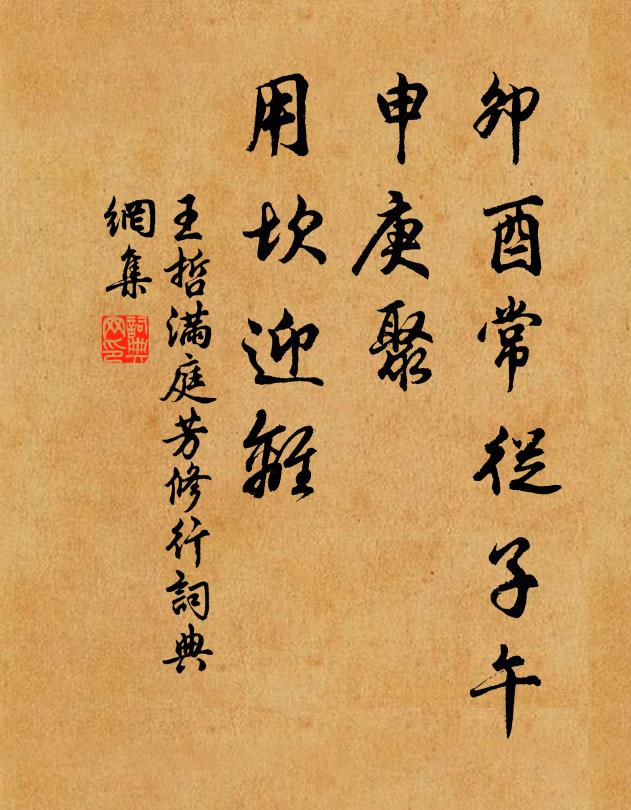 卯酉常從子午
申庚聚
用坎迎離
王哲滿庭芳修行詞典
網集
詞典
网印